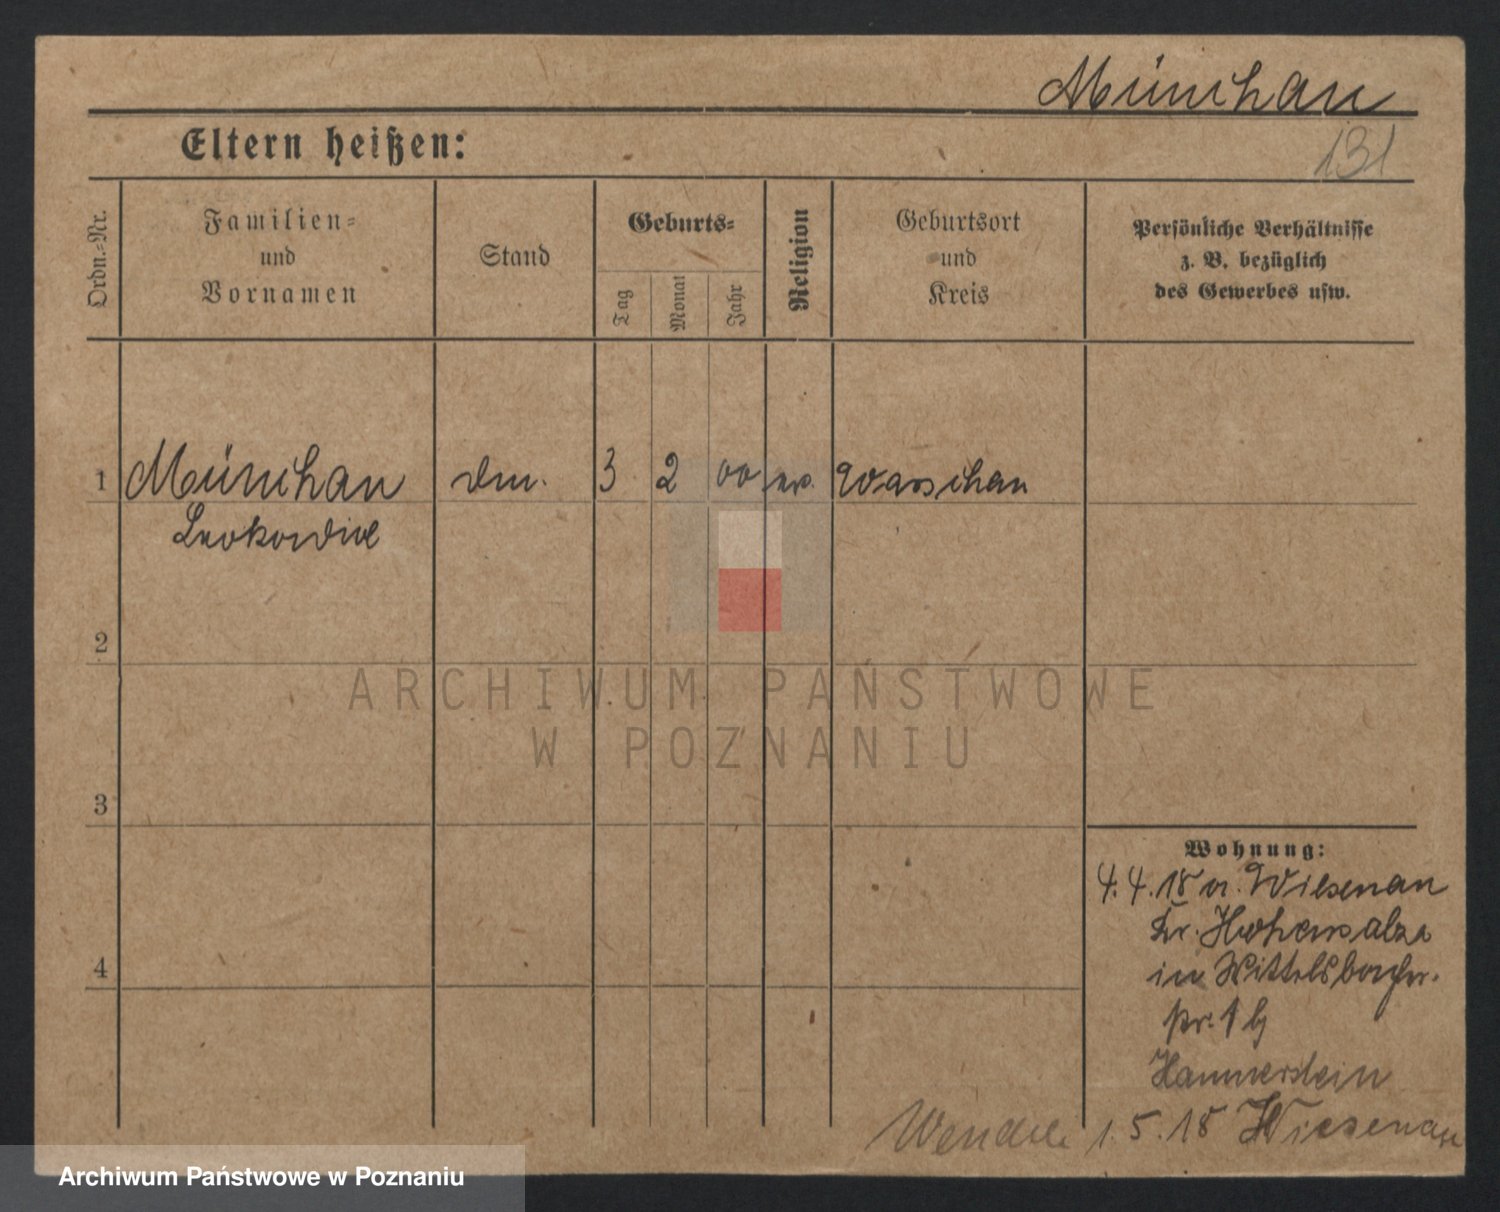 Münchau
131
Eltern heißen:
Ordn.-Nr.
Familien-
und
Vornamen
Stand
Geburts-
Tag
Monat
Jahr
Religion
Geburtsort
und
Kreis
Persönliche Verhältnisse
z. B. bezüglich
des Gewerbes usw.
1 Münchau 3 2 00 ev. Warschau
Leokardie
2
3
4
ARCHIWUM PAŃSTWOWE
W POZNANIU
Wohnung:
4.4.18 v. Wiesenau
Kr. Hohensalza
in Wittelsbacher-
str. 1 b
Hammerstein
1.5.18 Wiesenau
Archiwum Państwowe w Poznaniu